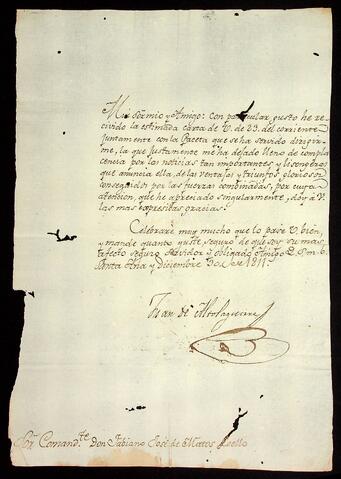 Mi Sor mio y Amigo: con particular gusto he re-
civido la estimada carta de V. de 23. del corriente
juntamente con la Gaceta que se ha servido dirigir-
me, la que justamente me ha dejado lleno de compla
cencia por las noticias tan importantes y lisongeras
que anuncia ella, de las ventajas y triunfos gloriosos
conseguidos por las fuerzas combinadas, por cuya
atencion, que he apreciado singularmente, doy a V.
las mas expresibas gracias.
Celebraré muy mucho que lo pase V. bien,
y mande quanto guste seguro de que soy su mas
afecto seguro Servidor y obligado Amigo Q. S. m. b.
Santa Ana y Diciembre 30 de 1811.
Juan de
Sor Comandte Don Fabiano José de Matos